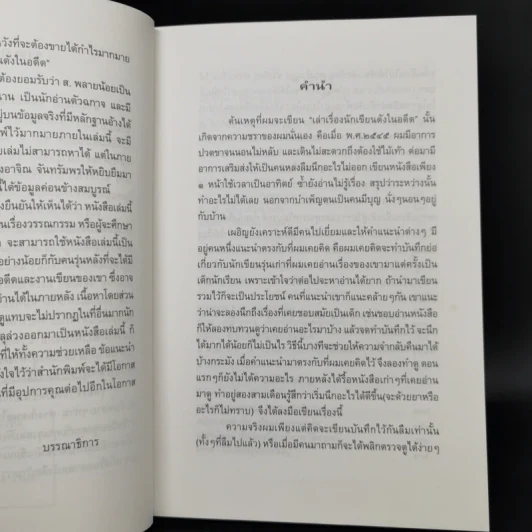 วังที่จะต้องขายได้กำไรมากมาย
นดังในอดีต"
ต้องยอมรับว่า ส. พลายน้อยเป็น
นาน เป็นนักอ่านตัวฉกาจ และมี
บนข้อมูลจริงที่มีหลักฐานอ้างได้
พ์ไว้มากมายภายในเล่มนี้ จะ
เล่มไม่สามารถหาได้ แต่ในภาย
อาจิณ จันทรัมพรให้หยิบยืมมา
ได้ข้อมูลค่อนข้างสมบูรณ์
ยืนยันให้เห็นได้ว่า หนังสือเล่มนี้
นเรื่องวรรณกรรม หรือผู้จะศึกษา
จะสามารถใช้หนังสือเล่มนี้เป็น
อย่างน้อยก็กับคนรุ่นหลังที่จะได้
อดีตและงานเขียนของเขา ซึ่งอาจ
านได้ในภายหลัง เนื้อหาโดยส่วน
ดูแทบจะไม่ปรากฏในที่อื่นมากนัก
ลุล่วงออกมาเป็นหนังสือเล่มนี้ ก็
ที่ให้ทั้งความช่วยเหลือ ข้อแนะนำ
งใจไว้ว่าสำนักพิมพ์จะได้มีโอกาส
ที่มีอุปการคุณต่อไปอีกในโอกาส
บรรณาธิการ
คำนำ
ต้นเหตุที่ผมจะเขียน "เล่าเรื่องนักเขียนดังในอดีต" นั้น
เกิดจากความชราของผมนั่นเอง คือเมื่อ พ.ศ.๒๕๔๕ ผมมีอาการ
ปวดขาจนนอนไม่หลับ และเดินไม่สะดวกถึงต้องใช้ไม้เท้า ต่อมามี
อาการเสริมส่งให้เป็นคนหลงลืมนึกอะไรไม่ออก เขียนหนังสือเพียง
๑ หน้าใช้เวลาเป็นอาทิตย์ ซ้ำยังอ่านไม่รู้เรื่อง สรุปว่าระหว่างนั้น
ทำอะไรไม่ได้เลย นอกจากบำเพ็ญตนเป็นคนมีบุญ นั่งๆนอนๆอยู่
กับบ้าน
เผอิญยังเคราะห์ดีมีคนไปเยี่ยมและให้คำแนะนำต่างๆ มี
อยู่คนหนึ่งแนะนำตรงกับที่ผมเคยคิด คือผมเคยคิดจะทำบันทึกย่อ
เกี่ยวกับนักเขียนรุ่นเก่าที่ผมเคยอ่านเรื่องของเขามาแต่ครั้งเป็น
เด็กนักเรียน เพราะเข้าใจว่าต่อไปจะหาอ่านได้ยาก ถ้านำมาเขียน
รวมไว้ก็จะเป็นประโยชน์ คนที่แนะนำเขาก็แนะคล้ายๆกัน เขาแนะ
ว่าน่าจะลองนึกถึงเรื่องที่เคยชอบสมัยเป็นเด็ก เช่นชอบอ่านหนังสือ
ก็ให้ลองทบทวนดูว่าเคยอ่านอะไรมาบ้าง แล้วจดทำบันทึกไว้ จะนึก
ได้มากก็ได้น้อยก็ไม่เป็นไร วิธีนี้บางทีจะช่วยให้ความจำกลับคืนมาได้
บ้างกระมัง เมื่อคำแนะนำมาตรงกับที่ผมเคยคิดไว้ จึงลองทำดู ตอน
แรกๆก็ยังไม่ได้ความอะไร ภายหลังได้รื้อหนังสือเก่าๆที่เคยอ่าน
มาดู ทำอยู่สองสามเดือนรู้สึกว่าเริ่มนึกอะไรได้ดีขึ้น(จะด้วยยาหรือ
อะไรก็ไม่ทราบ) จึงได้ลงมือเขียนเรื่องนี้
ความจริงผมเพียงแต่คิดจะเขียนบันทึกไว้กันลืมเท่านั้น
(ทั้งๆที่ลืมไปแล้ว) หรือเมื่อมีคนมาถามก็จะได้พลิกตรวจดูได้ง่ายๆ